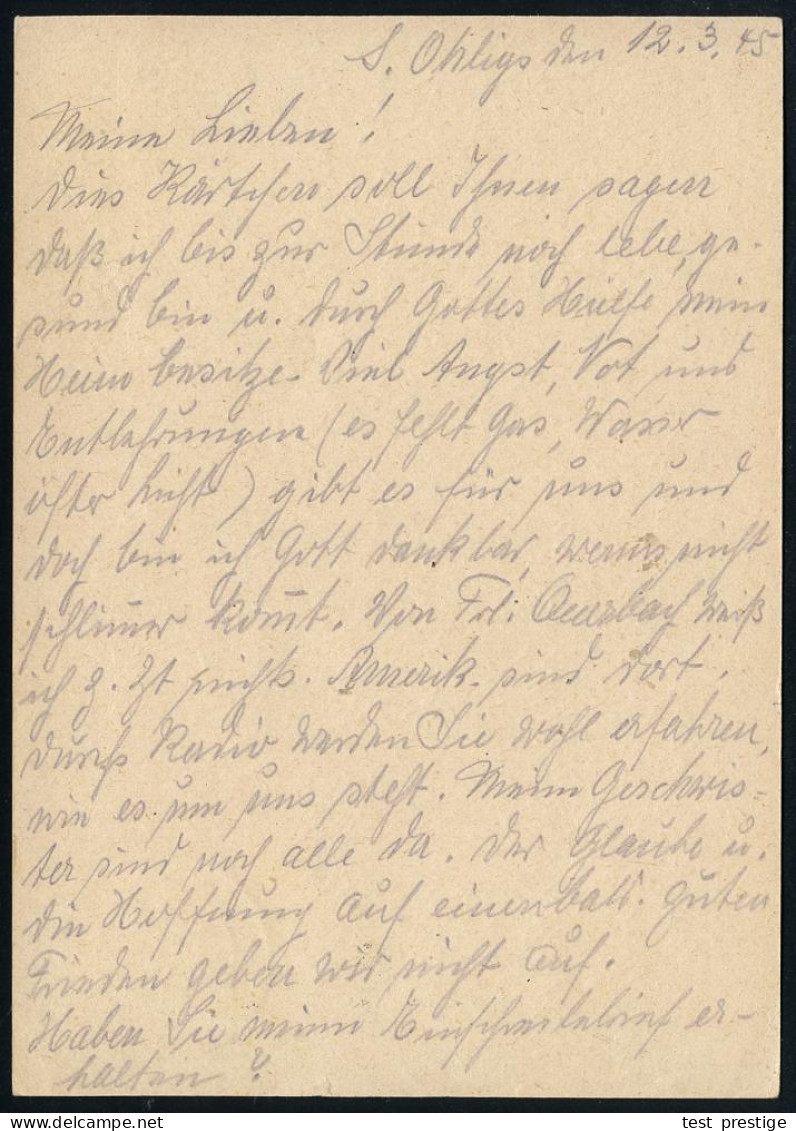 S. Ohligs den 12.3.45
Meine Lieben!
Dies Kärtchen soll Ihnen sagen
daß ich bis zur Stunde noch lebe, ge-
sund bin u. durch Gottes Hülfe mein
Heim besitze. Viel Angst, Not und
Entbehrungen (es fehlt Gas, Wasser
öfter Licht) gibt es für uns und
doch bin ich Gott dankbar, wenns nicht
schlimmer kommt. Von Frl. weiß
ich z. Zt nichts. Amerik. sind dort.
Durchs Radio werden Sie wohl erfahren,
wie es um uns steht. Meine Geschwis-
ter sind noch alle da. Der Glaube u.
die Hoffnung auf einen bald. guten
Frieden geben wir nicht auf.
Haben Sie meinen Einschreibebrief er-
halten?
test prestige